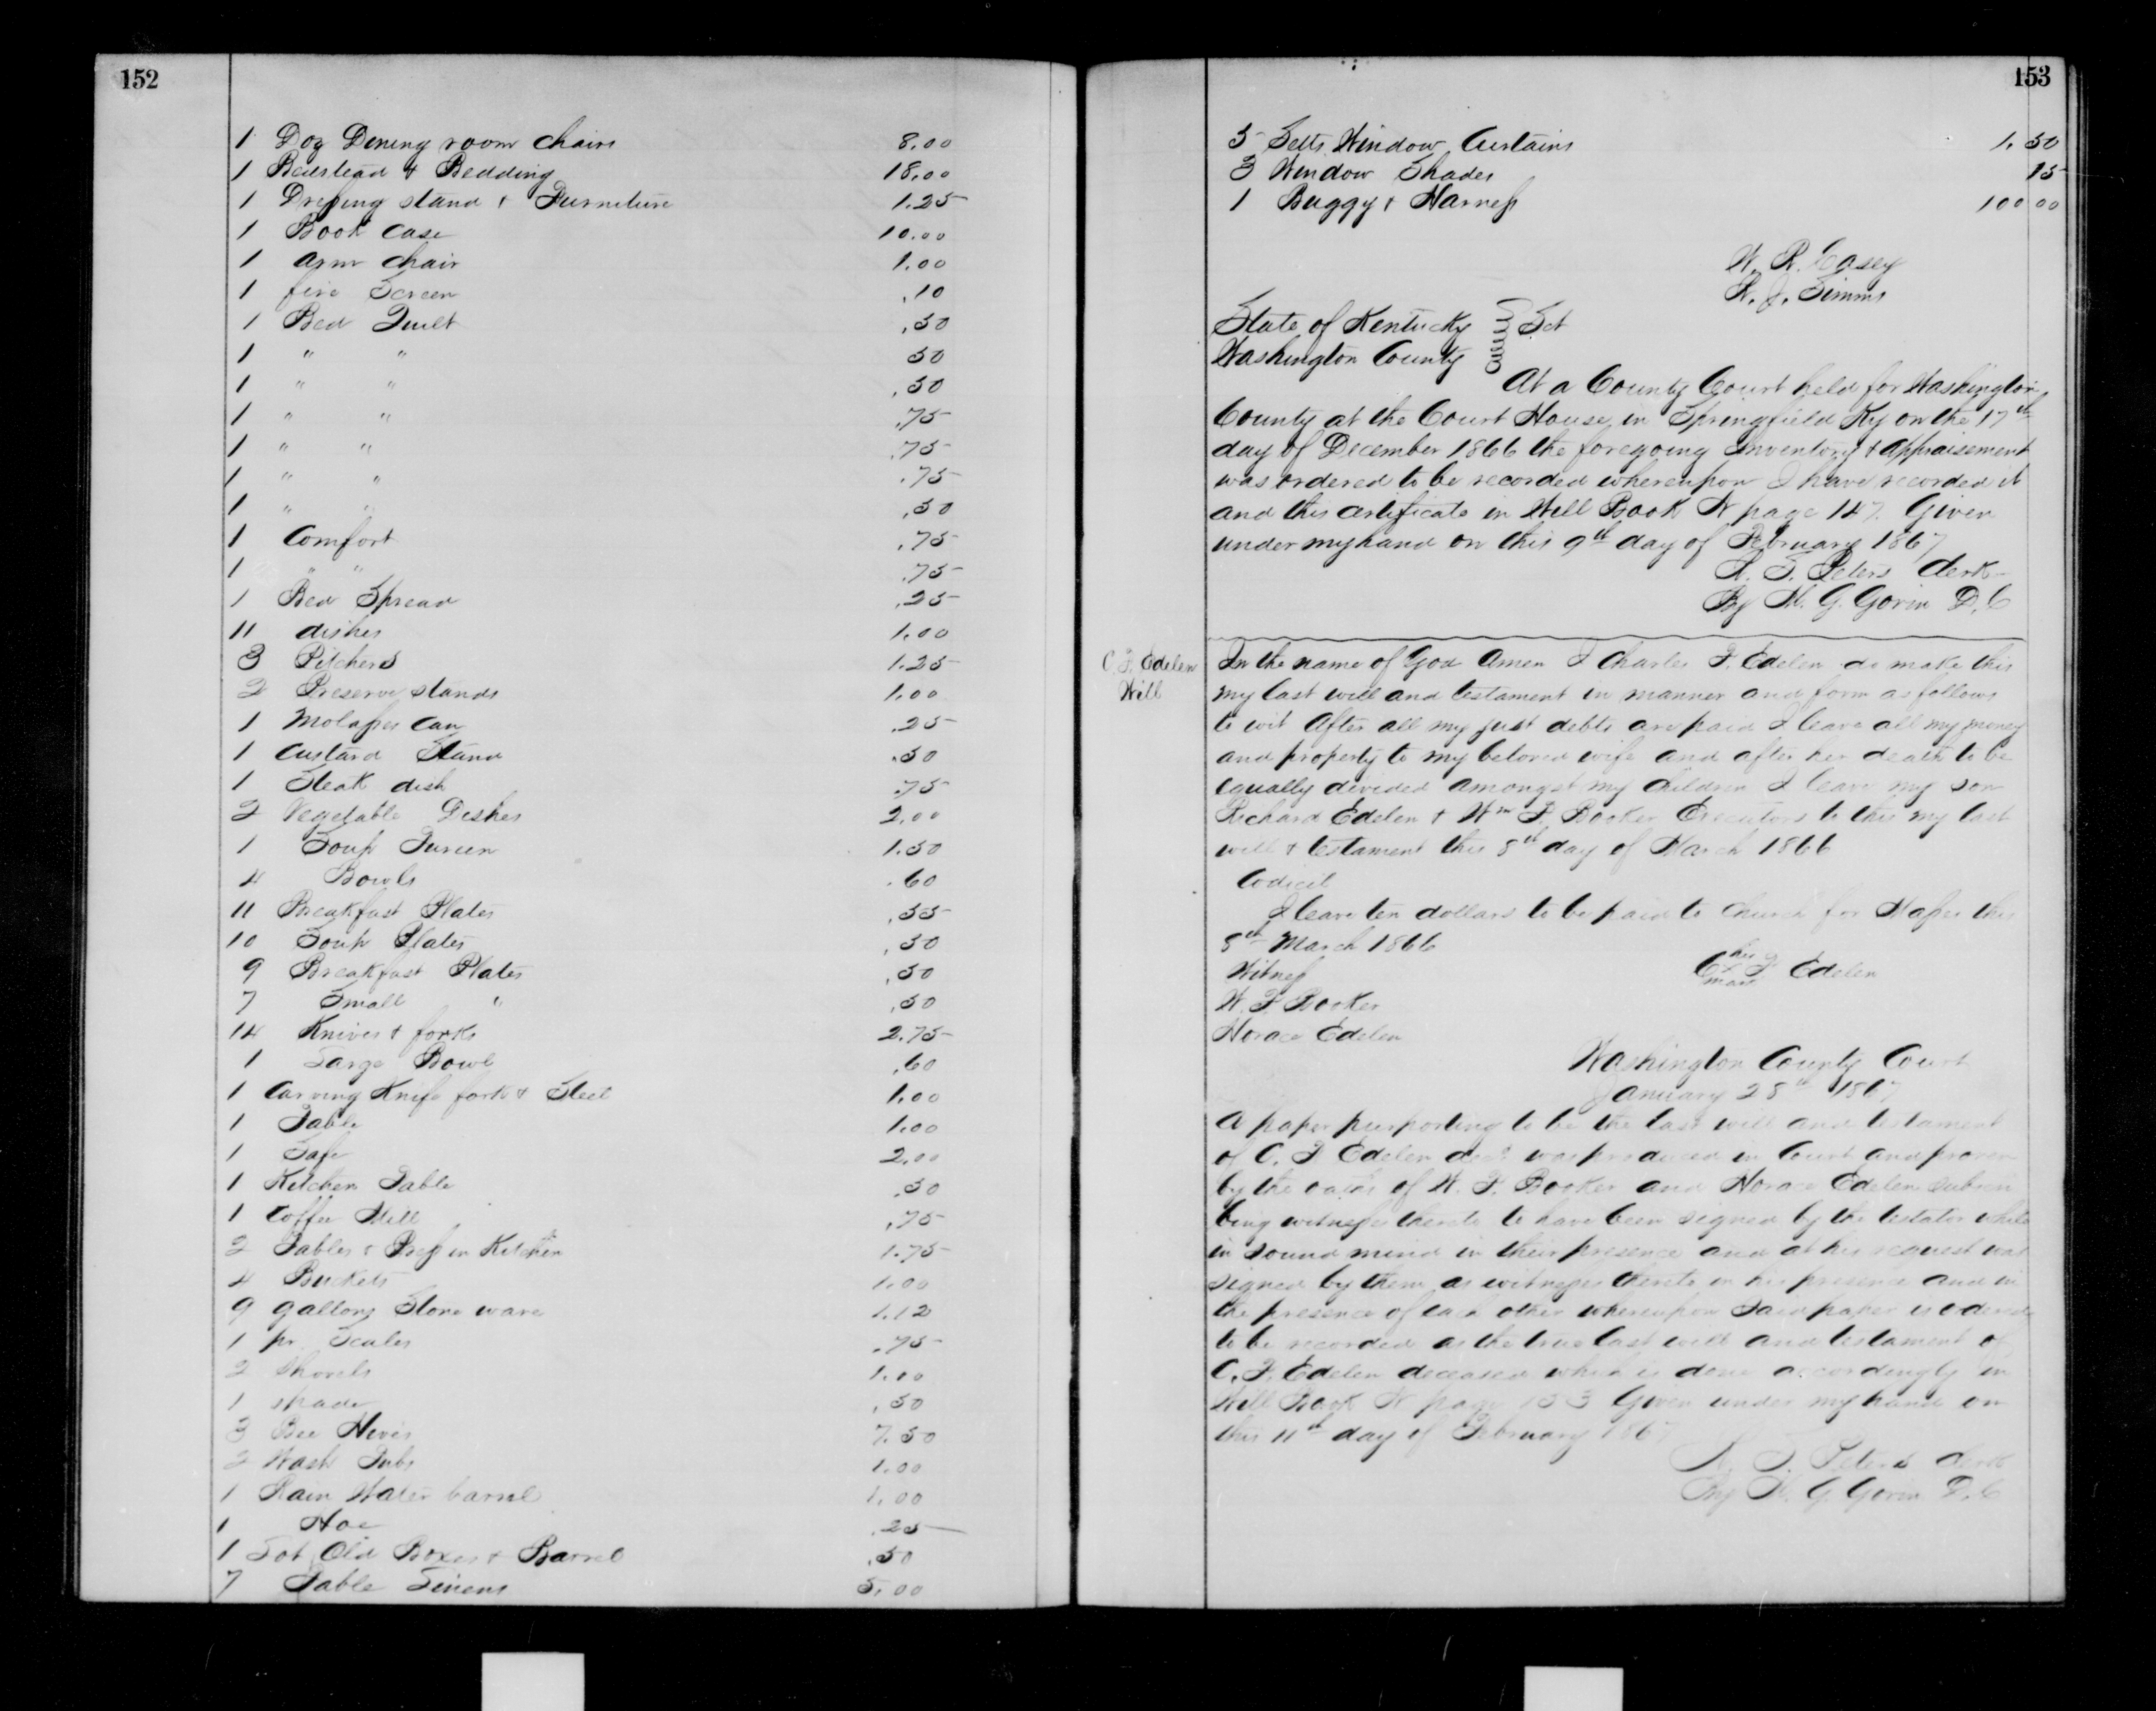 152
1 Doz Dining room chairs 8.00
1 Bedstead & Bedding 18.00
1 Dressing stand & Furniture 1.25
1 Book case 10.00
1 arm chair 1.00
1 fire Screen .10
1 Bed Quilt .50
1 " " 50
1 " " .50
1 " " .75
1 " " .75
1 " " .75
1 " " .50
1 Comfort .75
1 " " .75
1 Bed Spread .25
11 dishes 1.00
3 Pitchers 1.25
2 Preserve stands 1.00
1 Molasses Can .25
1 Custard Stand .50
1 Steak dish .75
2 Vegetable Dishes 2.00
1 Soup Tureen 1.50
4 Bowls .60
11 Breakfast Plates .55
10 Soup Plates .50
9 Breakfast Plates .50
7 Small " .50
14 Knives & forks 2.75
1 Large Bowl .60
1 Carving Knife fork & Steel 1.00
1 Table 1.00
1 Safe 2.00
1 Kitchen Table .50
1 Coffee Mill .75
2 Tables & Press in Kitchen 1.75
4 Buckets 1.00
9 gallons Stone ware 1.12
1 pr Scales .75
2 Shovels 1.00
1 spade .50
3 Bee Hives 7.50
2 Wash Tubs 1.00
1 Rain Water barrel 1.00
1 Hoe .25
1 Lot Old Boxes & Barrel .50
7 Table Linens 5.00
153
5 Setts Window Curtains 1.50
3 Window Shades 15
1 Buggy & Harness 100 00
W. R. Casey
R. J. Simms
State of Kentucky } Sct
Washington County
At a County Court held for Washington
County at the Court House in Springfield Ky on the 17th
day of December 1866 the foregoing Inventory & Appraisement
was ordered to be recorded whereupon I have recorded it
and this certificate in Will Book N page 147. Given
under my hand on this 9th day of February 1867
Peters Clerk
By M. G. Gorin D. C
C. F. Edelen
Will
In the name of God Amen I Charles F. Edelen do make this
my last will and testament in manner and form as follows
to wit After all my just debts are paid I leave all my money
and property to my beloved wife and after her death to be
equally divided amongst my children I leave my son
Richard Edelen & Wm F. Booker Executors to this my last
will & testament this 8th day of March 1866
Codicil
I leave ten dollars to be paid to Church for Masses this
8th March 1866
his
C x F Edelen
mark
Witness
W. F. Booker
Horace Edelen
Washington County Court
January 28th 1867
A paper purporting to be the last will and testament
of C. F Edelen decd was produced in Court and proven
by the oaths of W. F. Booker and Horace Edelen subscri
bing witnesses thereto to have been signed by the testator while
in sound mind in their presence and at his request was
signed by them as witnesses thereto in his presence and in
the presence of each other whereupon said paper is ordered
to be recorded as the true last will and testament of
C. F. Edelen deceased which is done accordingly in
Will Book N page 153 Given under my hand on
this 11th day of February 1867
Peters Clerk
By M. G. Gorin D. C